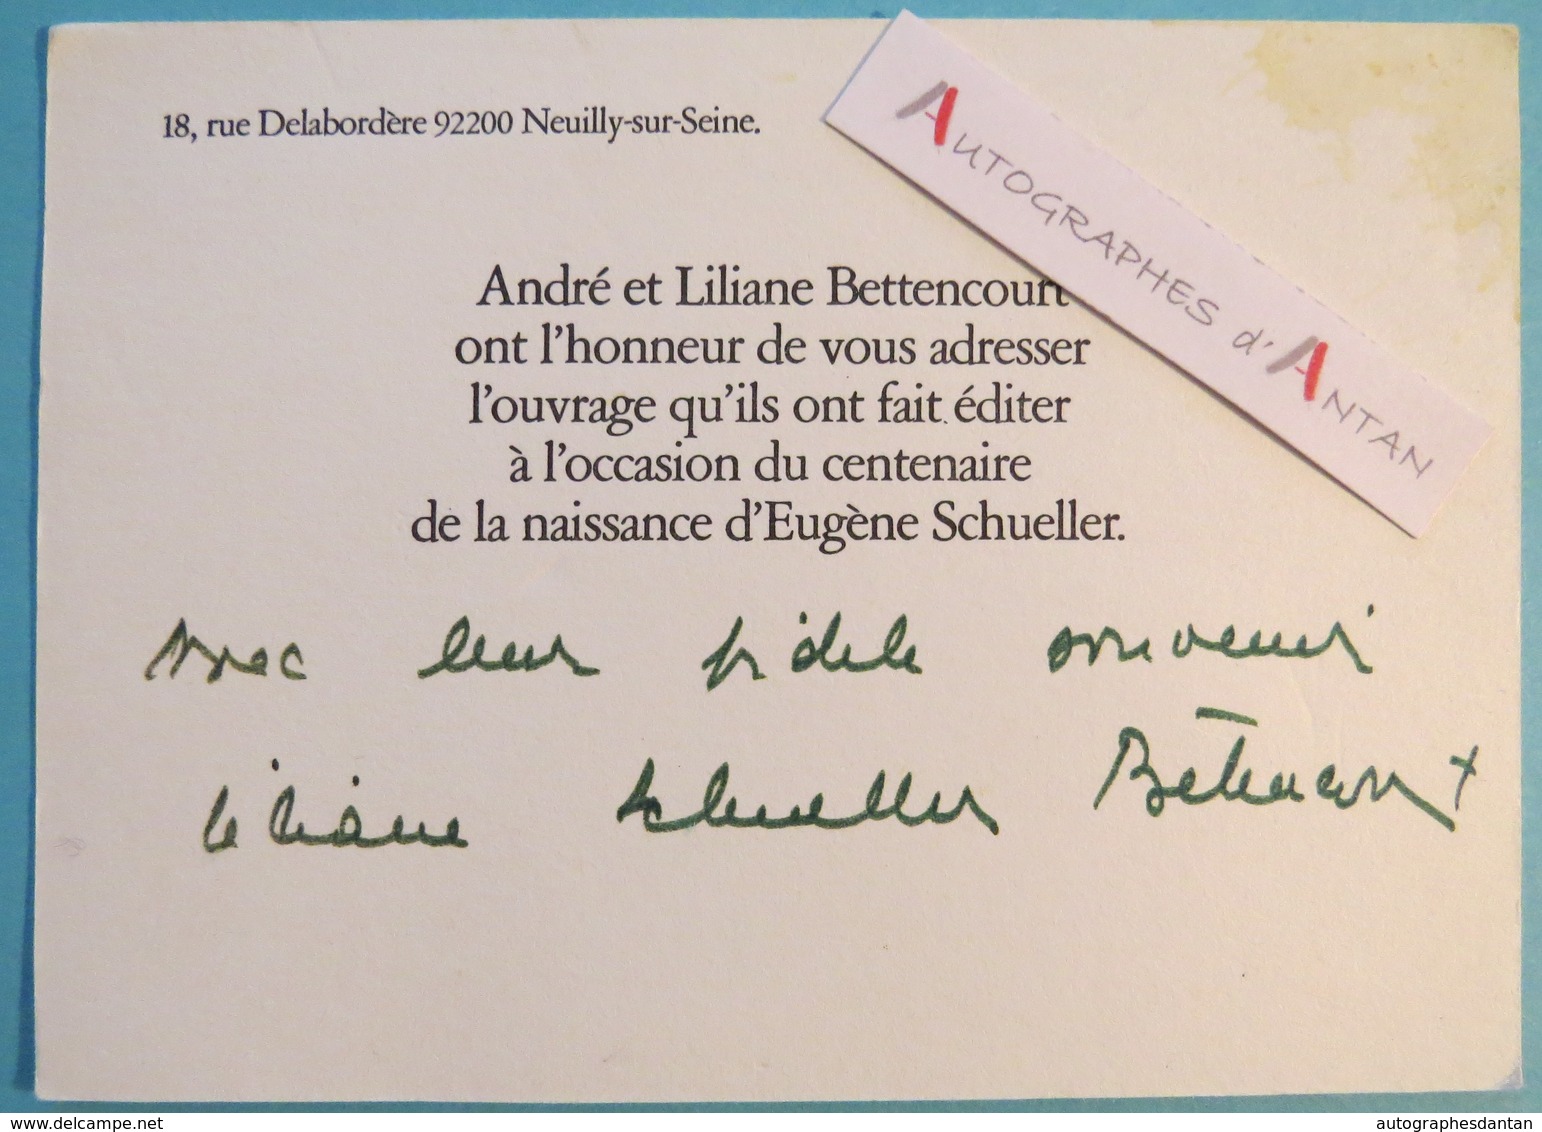 18, rue Delabordère 92200 Neuilly-sur-Seine.
AUTOGRAPHES d'ANTAN
André et Liliane Bettencourt
ont l'honneur de vous adresser
l'ouvrage qu'ils ont fait éditer
à l'occasion du centenaire
de la naissance d'Eugène Schueller.
avec leur fidele souvenir
Liliane Schueller Bettencourt
delcampe.net
autographesdantan